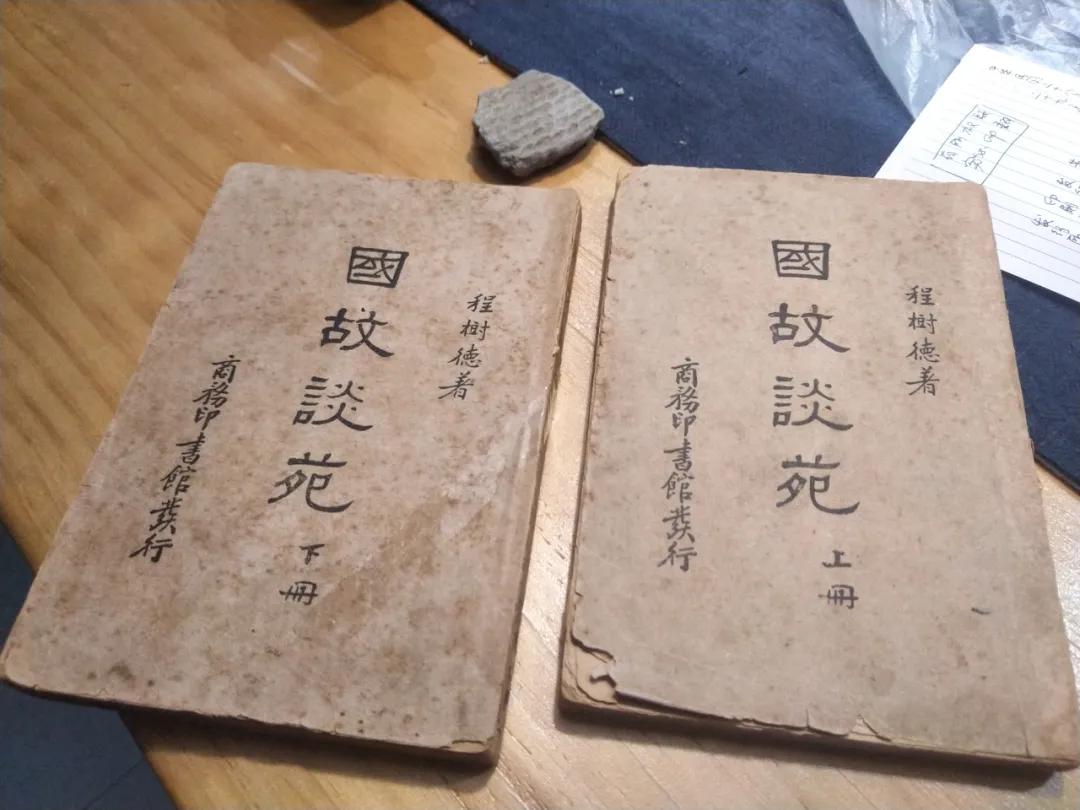 程樹德著
國故談苑
上冊
商務印書館發行
程樹德著
國故談苑
下冊
商務印書館發行